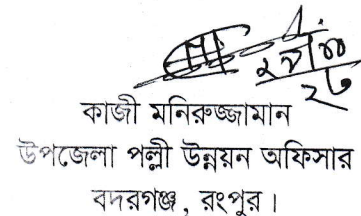 কাজী মনিরুজ্জামান
উপজেলা পল্লী উন্নয়ন অফিসার
বদরগঞ্জ, রংপুর।